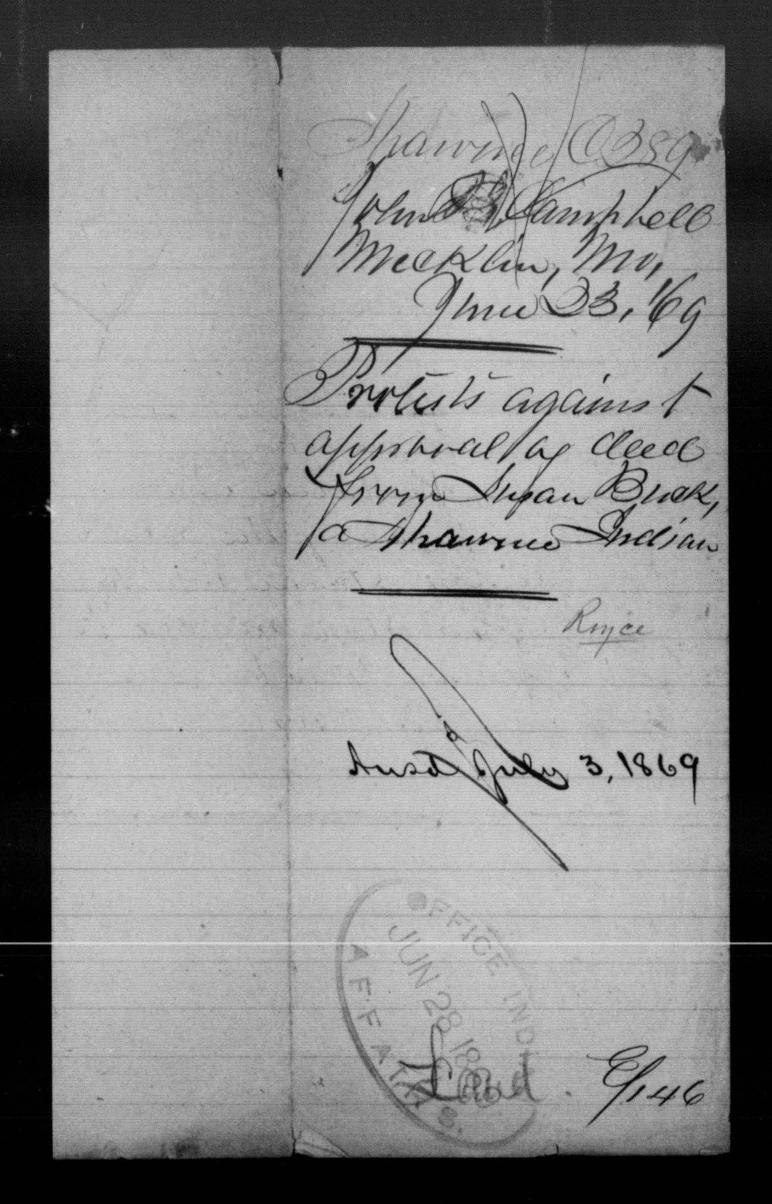 Shawnee C389
John B. Campbell
Mecklin, Mo,
June 23, '69
Protests against
approval of deed
from Susan Buck,
a Shawnee Indian
Royce
Ansd July 3, 1869
OFFICE INDIAN
AFFAIRS.
JUN 28 1869
Land.
E/146